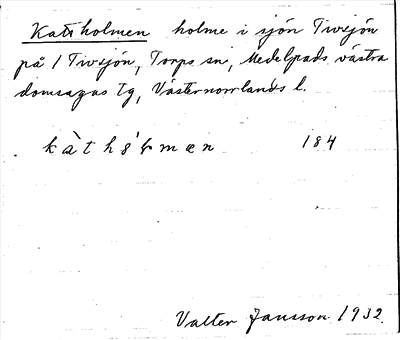 Kattholmen holme i sjön Tivsjön
på 1 Tivsjön, Torps sn, Medelpads västra
domsagas tg, Västernorrlands l.
kàthól̵mæn 184
Valter Jansson 1932.